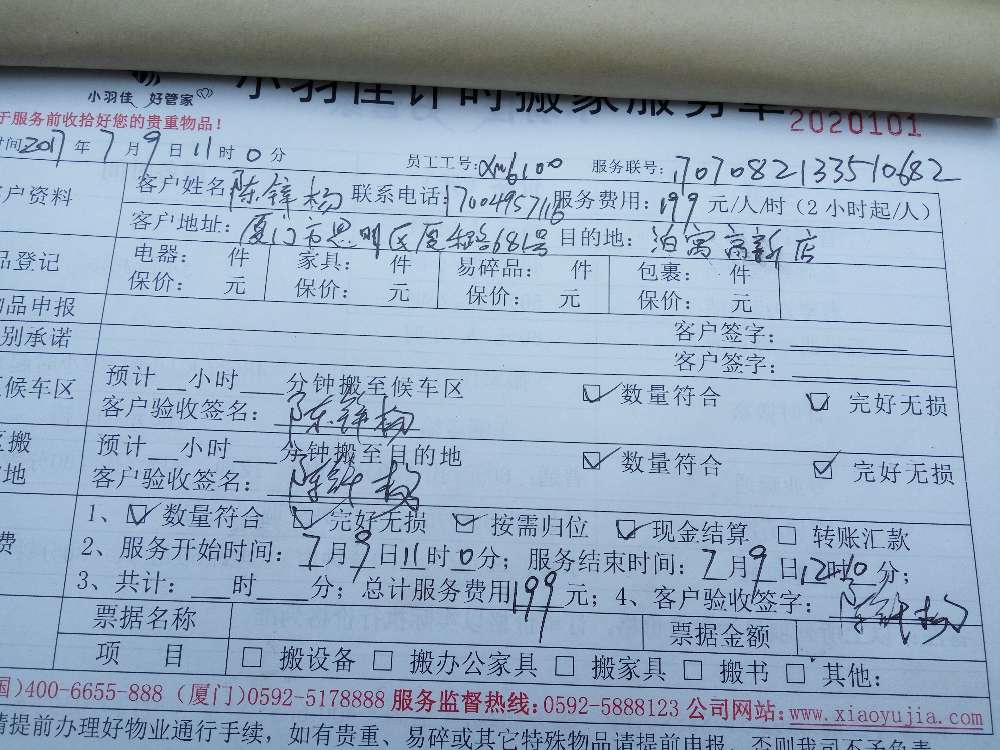 小羽佳 好管家
小羽佳计时搬家服务单
2020101
于服务前收拾好您的贵重物品！
时间2017年7月9日11时0分 员工工号：xm6100 服务联号：
客户资料 客户姓名 陈锌杨 联系电话：17004957116 服务费用：199元/人/时（2小时起/人）
客户地址：厦门市思明区厦禾路681号 目的地：泊寓高新店
品登记 电器： 件 家具： 件 易碎品： 件 包裹： 件
保价： 元 保价： 元 保价： 元 保价： 元
物品申报 客户签字：
别承诺 客户签字：
候车区 预计__小时____分钟搬至候车区 ☑数量符合 ☑完好无损
客户验收签名：陈锌杨
搬 预计__小时____分钟搬至目的地 ☑数量符合 ☑完好无损
地 客户验收签名：陈锌杨
费 1、☑数量符合 ☑完好无损 ☑按需归位 ☑现金结算 □转账汇款
2、服务开始时间：7月9日11时0分；服务结束时间：7月9日12时0分；
3、共计：___时____分；总计服务费用199元；4、客户验收签字：陈锌杨
票据名称 票据金额
项 目 □搬设备 □搬办公家具 □搬家具 □搬书 □其他：
国)400-6655-888（厦门)0592-5178888 服务监督热线：0592-5888123 公司网站：www.xiaoyujia.com
请提前办理好物业通行手续，如有贵重、易碎或其它特殊物品请提前申报，否则我司不予负责